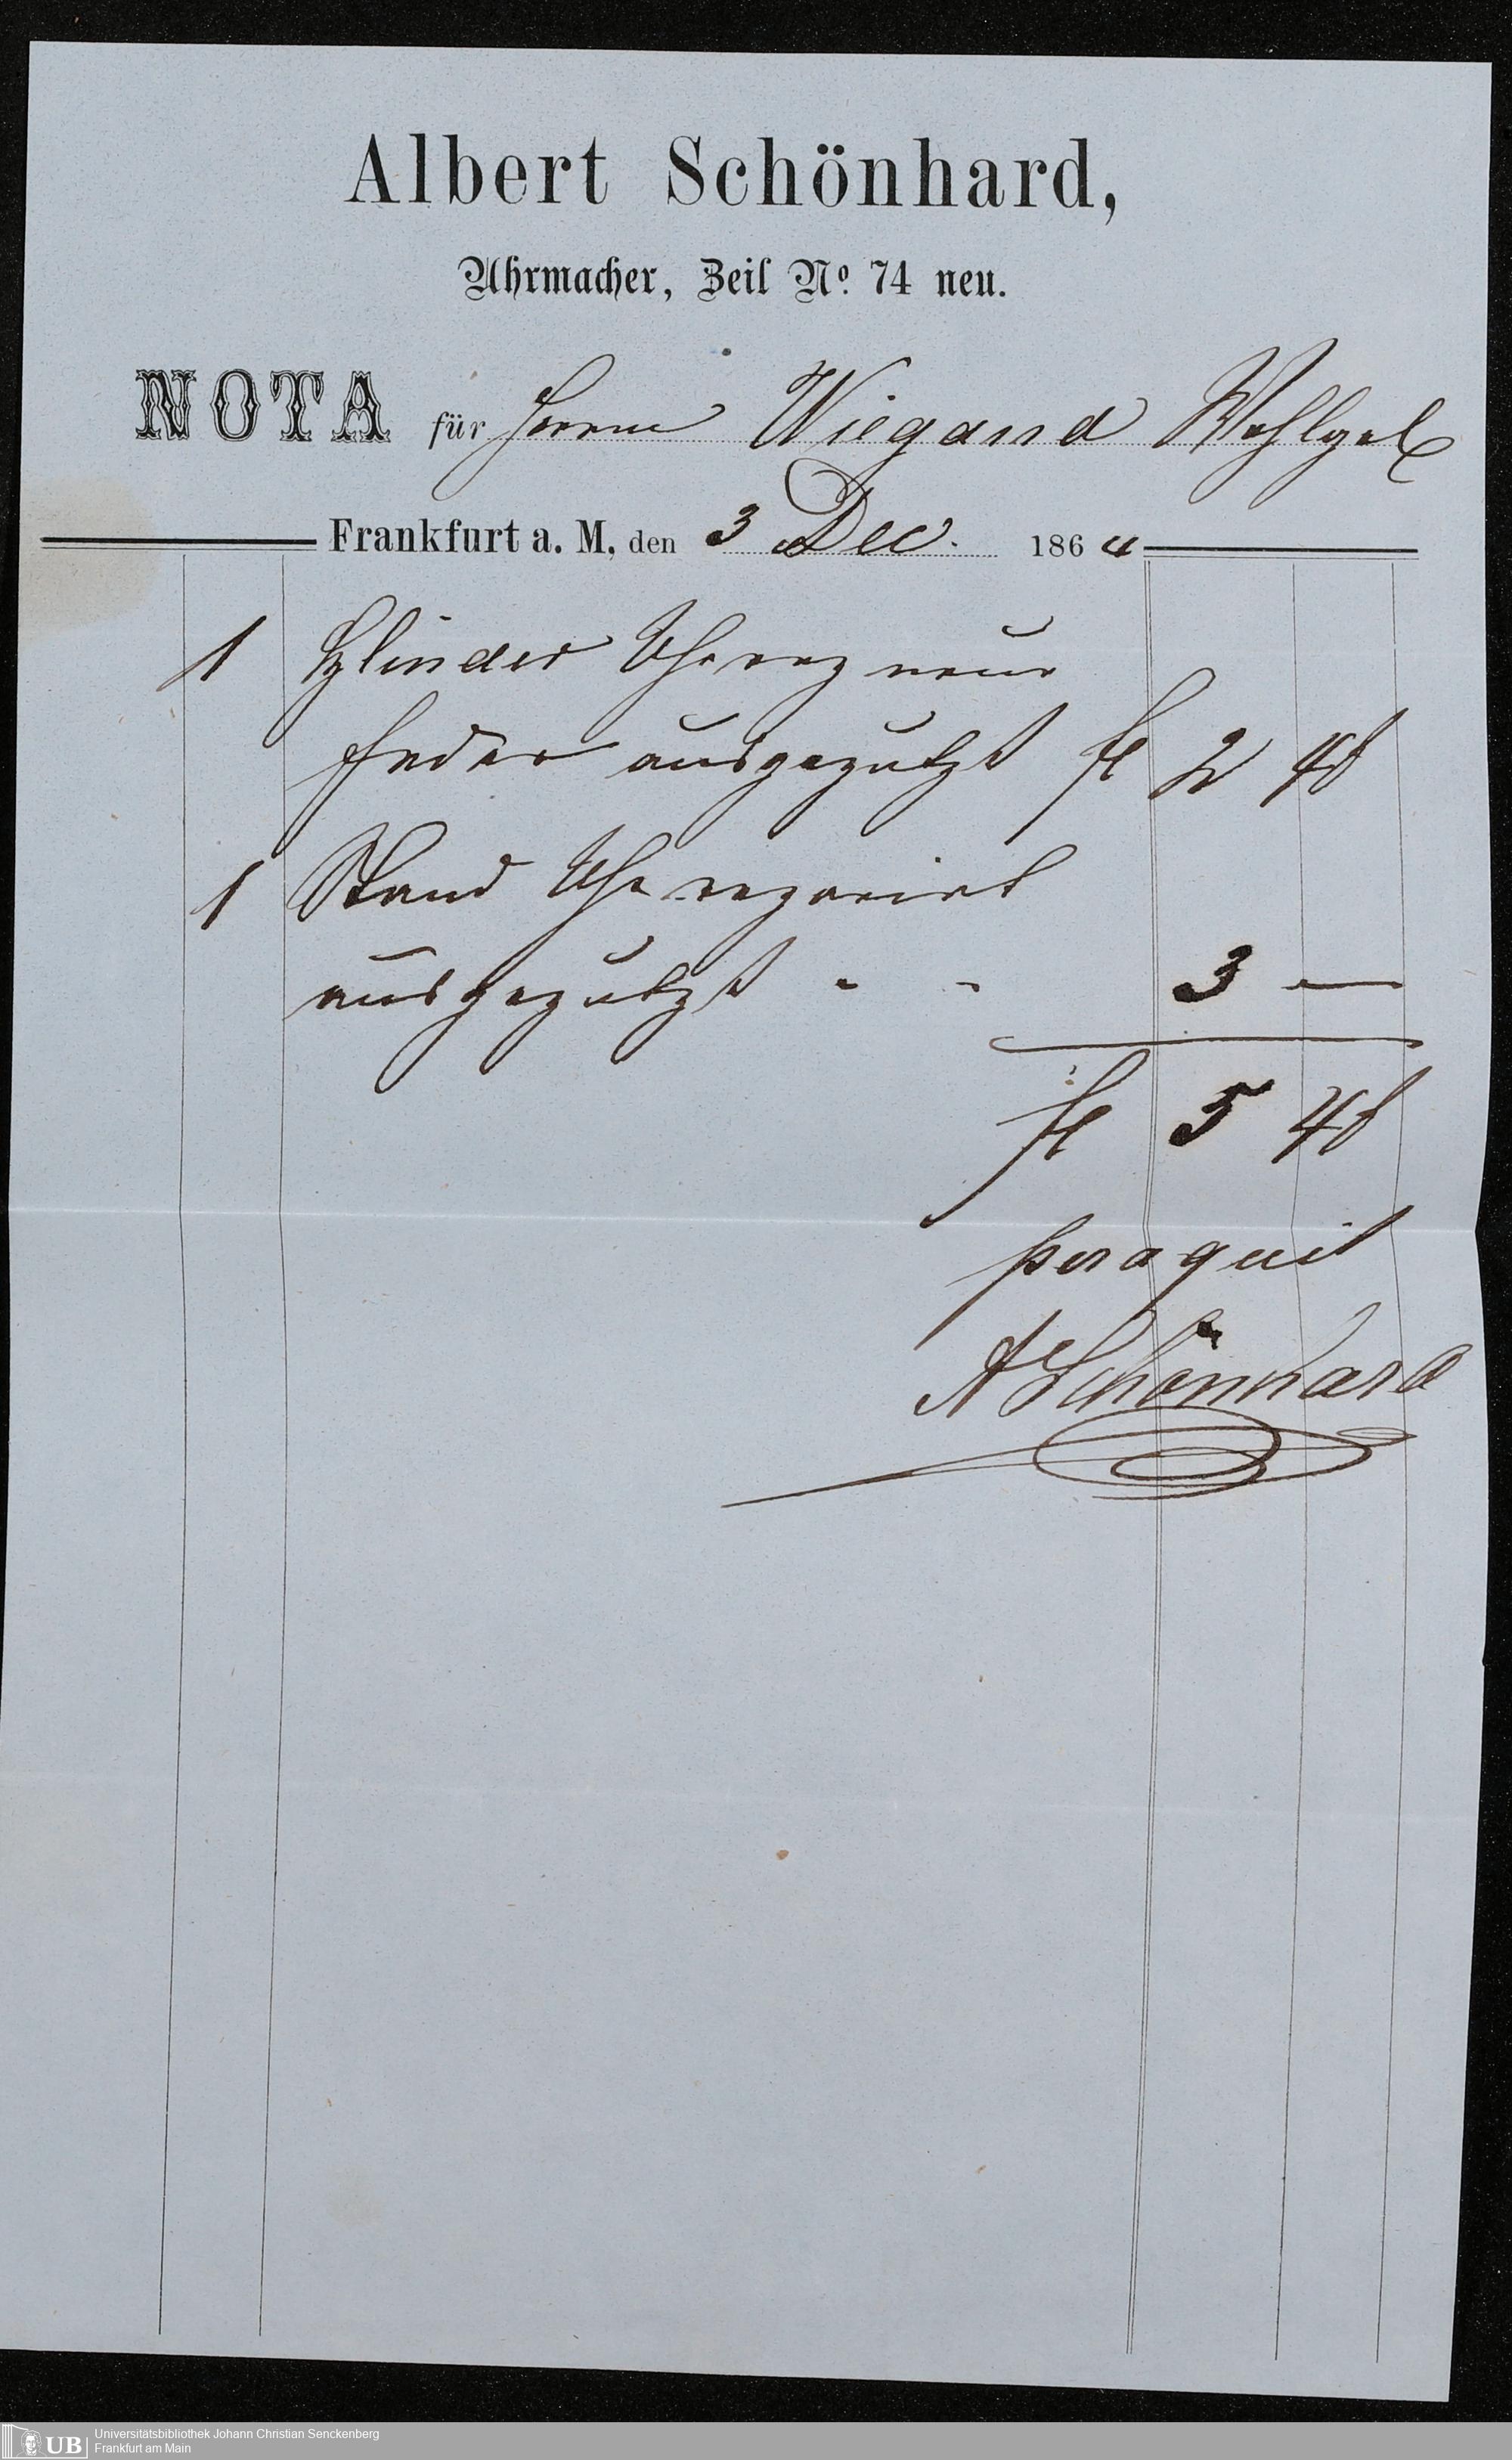 Albert Schönhard,
Uhrmacher, Zeil No. 74 neu.
NOTA für Herrn Wiegand Wohlgeb
Frankfurt a. M, den 3 Dec. 1864
1 Cylinder Uhr rep neue
Feder ausgeputzt fl 2 48
1 Stand Uhr reparirt
ausgeputzt " " 3 —
fl 5 48
per aquit
A Schönhard
UB
Universitätsbibliothek Johann Christian Senckenberg
Frankfurt am Main